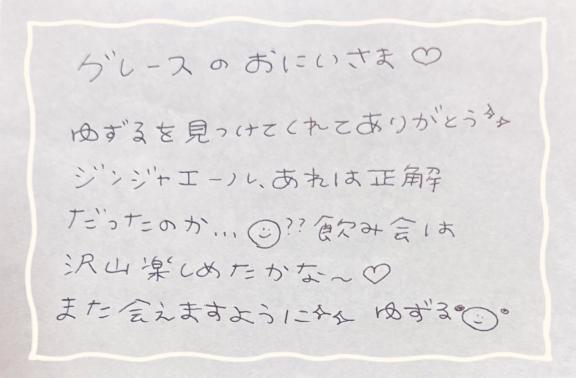 グレースのおにいさま♡
ゆずるを見つけてくれてありがとう✨
ジンジャエール、あれは正解
だったのか…☺??飲み会は
沢山楽しめたかな〜♡
また会えますように✨ ゆずる☺